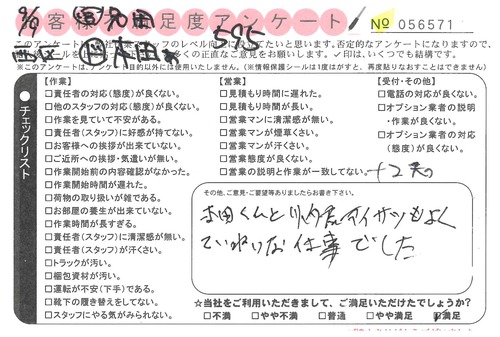 お客様満足度アンケート
No 056571
9/9
595
このアンケートは
スタッフのレベル向上
と思います。否定的なアンケートになりますので、
多くの正直なご意見をお願いします。✓印は、いくつでも結構です。
※このアンケートは、アンケート目的以外に使用いたしません。(※情報保護シールは1度はがすと、再度貼りなおすことはできません)
●チェックリスト
【作業】
□責任者の対応(態度)が良くない。
□他のスタッフの対応(態度)が良くない。
□作業を見ていて不安がある。
□責任者(スタッフ)に好感が持てない。
□お客様への挨拶が出来ていない。
□ご近所への挨拶・気遣いが無い。
□作業開始前の内容確認がなかった。
□作業開始時間が遅れた。
□荷物の取り扱いが雑である。
□お部屋の養生が出来ていない。
□作業時間が長すぎる。
□責任者(スタッフ)に清潔感が無い。
□責任者(スタッフ)が汗くさい。
□トラックが汚い。
□梱包資材が汚い。
□運転が不安(下手)である。
□靴下の履き替えをしてない。
□スタッフにやる気がみられない。
【営業】
□見積もり時間に遅れた。
□見積もり時間が長い。
□営業マンに清潔感が無い。
□営業マンが煙草くさい。
□営業マンが汗くさい。
□営業態度が良くない。
□営業の説明と作業が一致してない。
【受付・その他】
□電話の対応が良くない。
□オプション業者の説明
・作業が良くない。
□オプション業者の対応
(態度)が良くない。
+2点
その他、ご意見・ご要望等ありましたらお書き下さい。
本田くんと
アイサツもよく
ていねいな仕事でした
☆当社をご利用いただきまして、ご満足いただけたでしょうか？
□不満 □やや不満 □普通 □やや満足 ☑満足